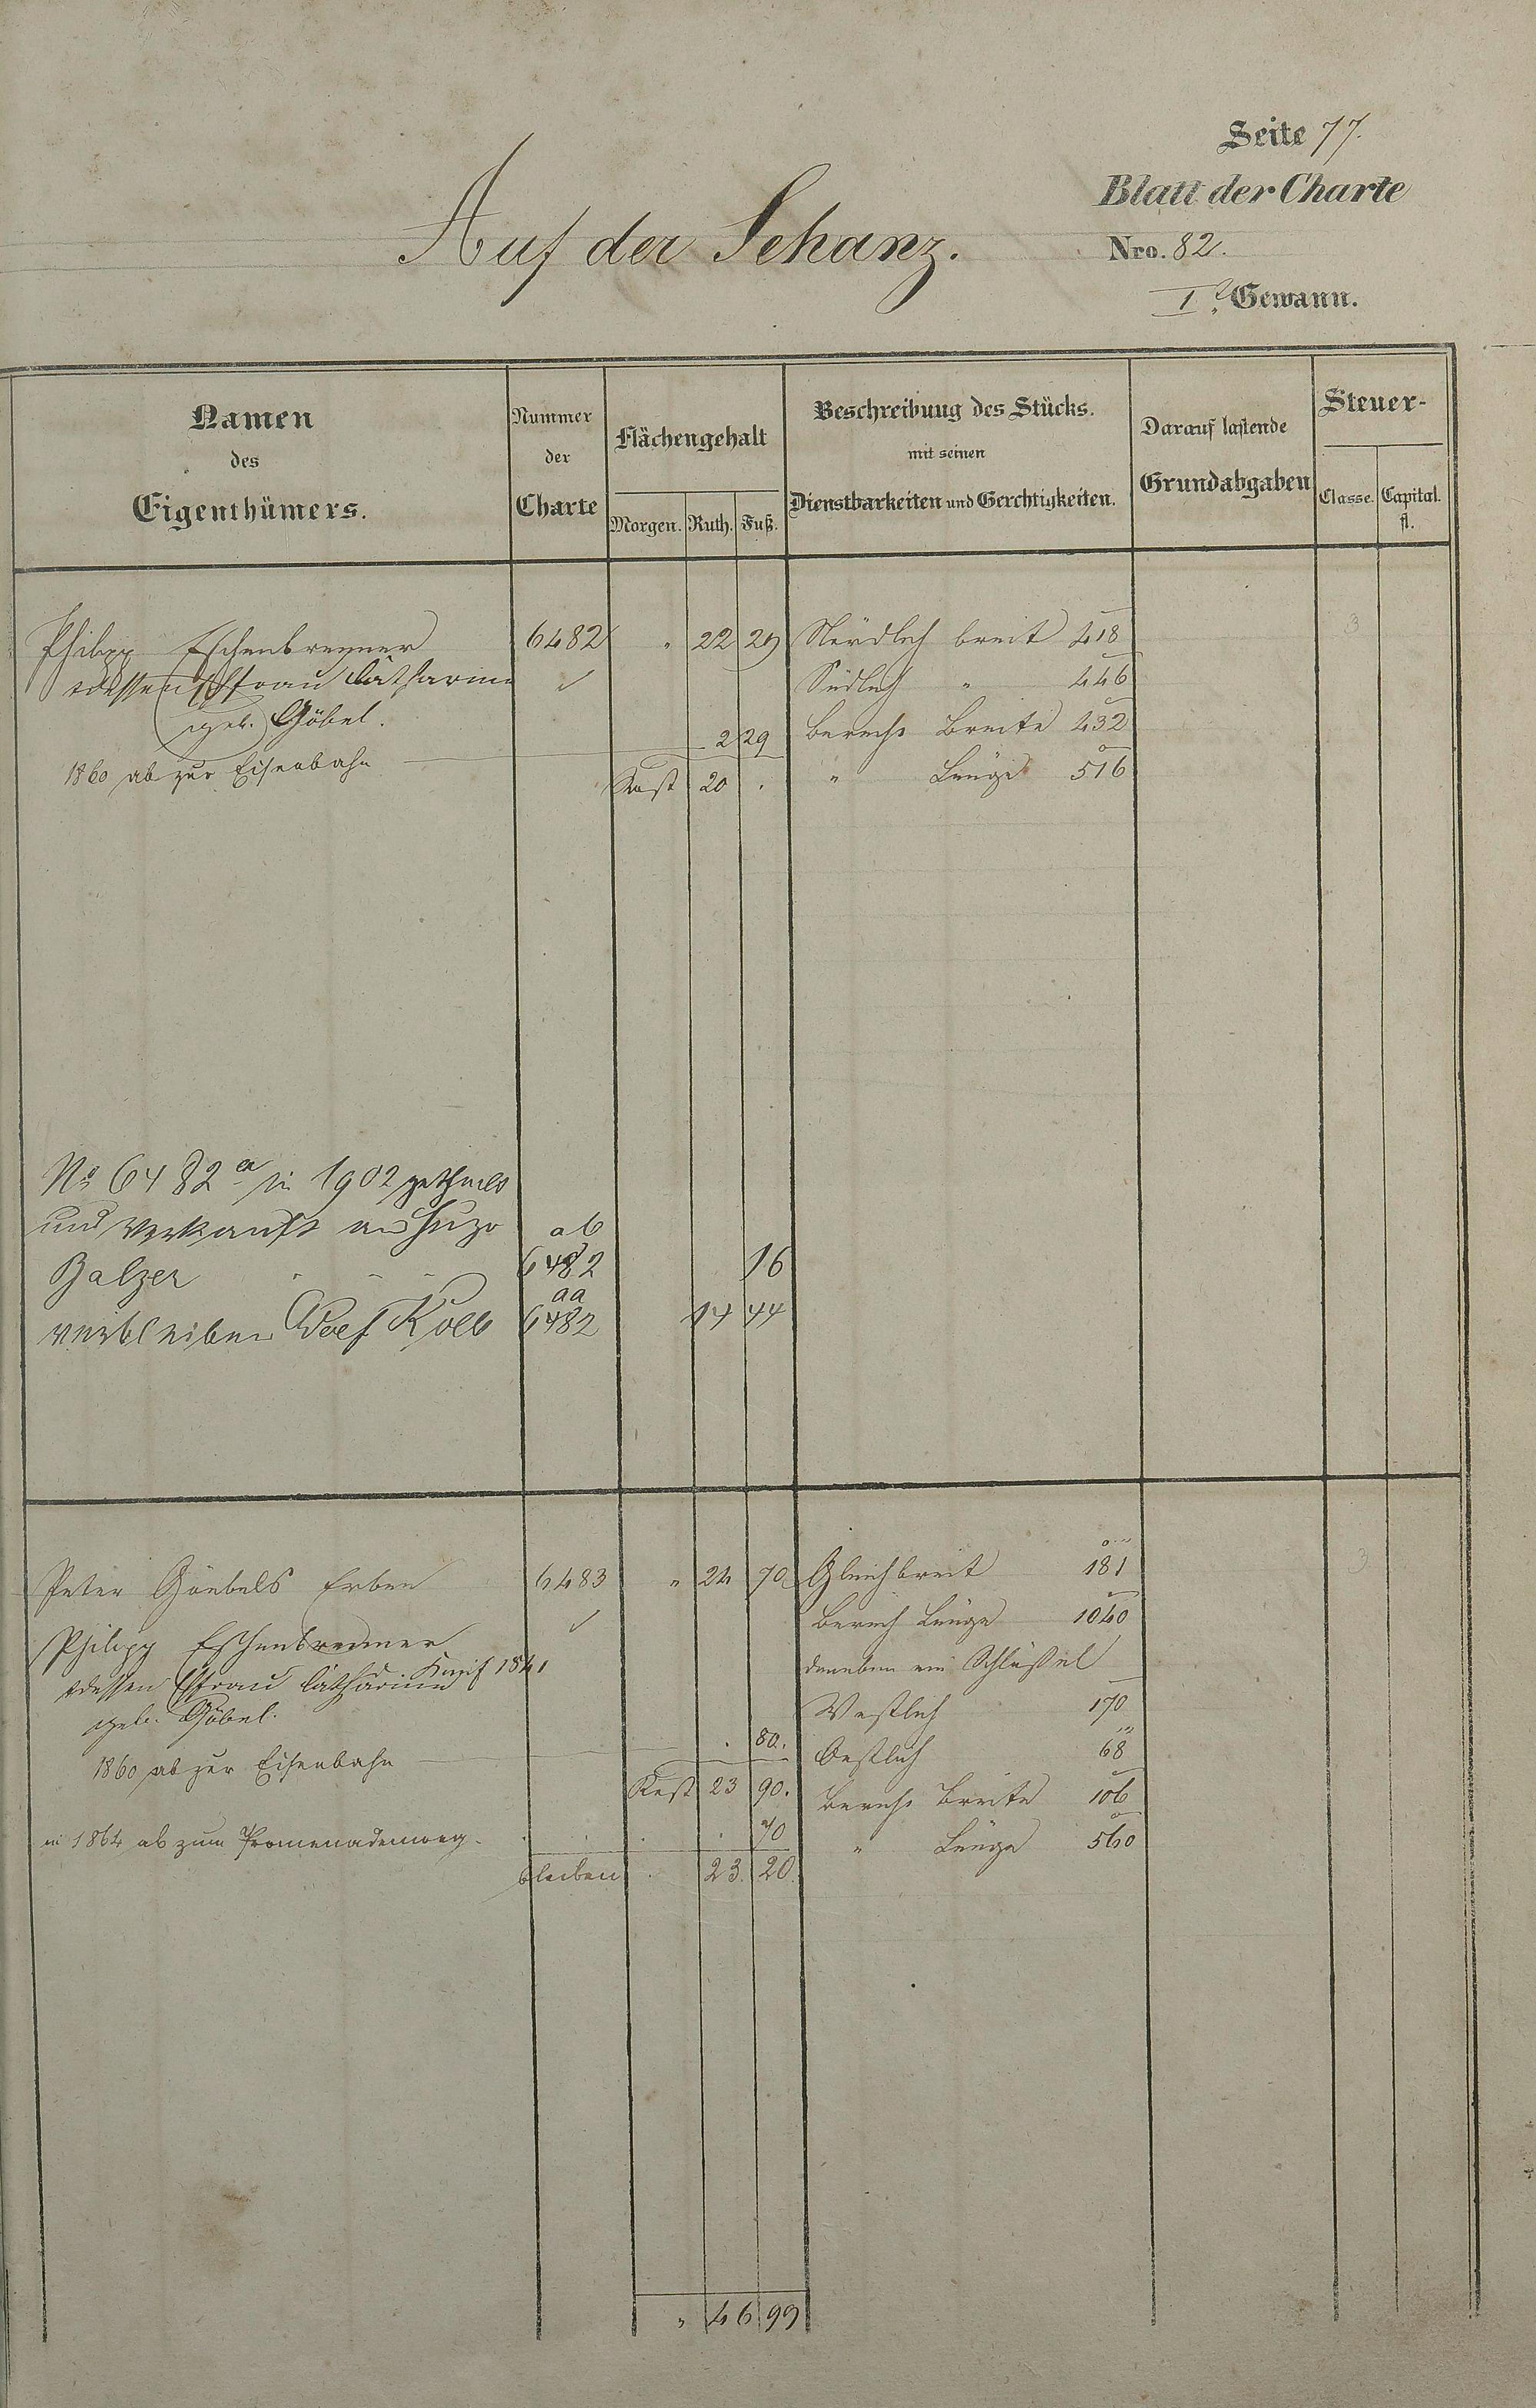 Seite 77.
Blatt der Charte
Auf der Schanz.
Nro. 82.
I. Gewann.
Namen des Eigenthümers.
Nummer der Charte
Flächengehalt
Morgen. Ruth. Fuß.
Beschreibung des Stücks. mit seinen Dienstbarkeiten und Gerechtigkeiten.
Darauf lastende Grundabgaben
Steuer-
Classe. Capital. fl.
Philipp Eschenbrenner 6482 " 22 29 Nördlich breit 418 3
dessen Ehefrau Catharina Südlich " 446
geb. Göbel. 2 29 berechn. Breite 432
1860 ab zur Eisenbahn
Rest 20 . " Länge 516
No 6482 a in 1902 getheilt
und verkauft an Hugo ab
Balzer - - - 6482 16
aa
verbleiben Adolf Kolb 6482 14 44
Peter Göebels Erben 6483 " 24 70 Gleichbreit 181 3
Philipp Eschenbrenner berech Länge 1040
dessen Ehefrau Catharina d. Kauf 1841 daneben ein Schlüssel
geb. Göbel. Westlich 170
. 80. Oestlich 68
1860 ab zur Eisenbahn
Rest 23 90. berechn. Breite 106
in 1864 ab zum Promenadenweg . . . . 70 " Länge 560
bleiben . 23. 20.
" 46 99